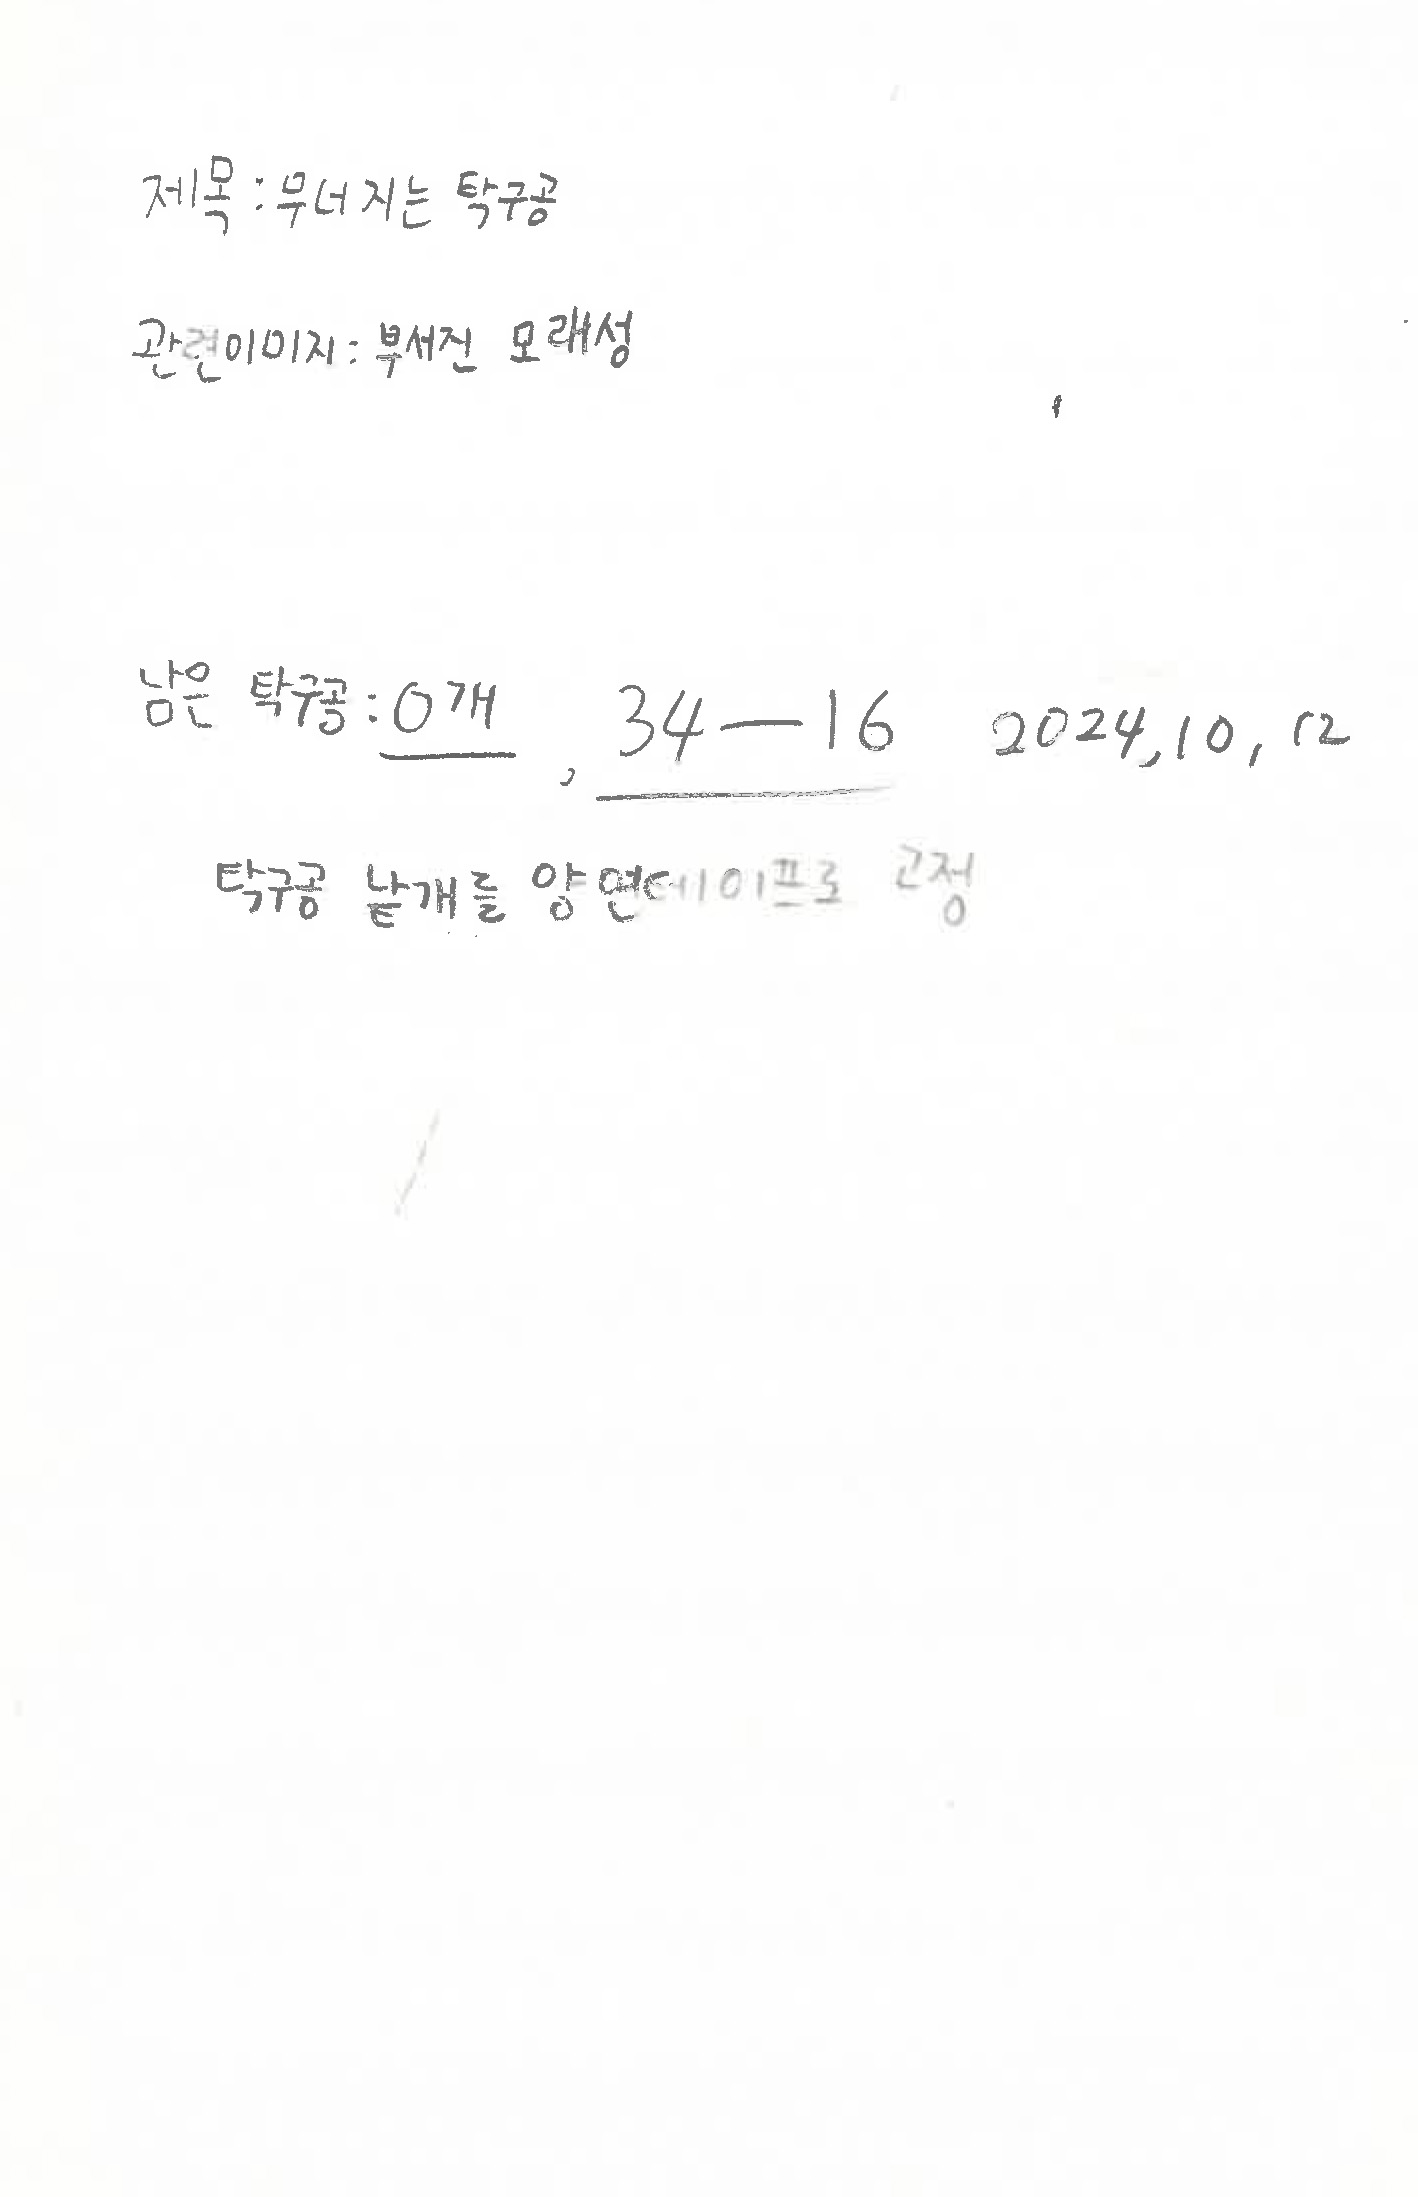 제목:무너지는 탁구공
관련이미지:부서진 모래성
남은 탁구공:0개, 34-16 2024,10,12
탁구공 낱개를 양면테이프로 고정